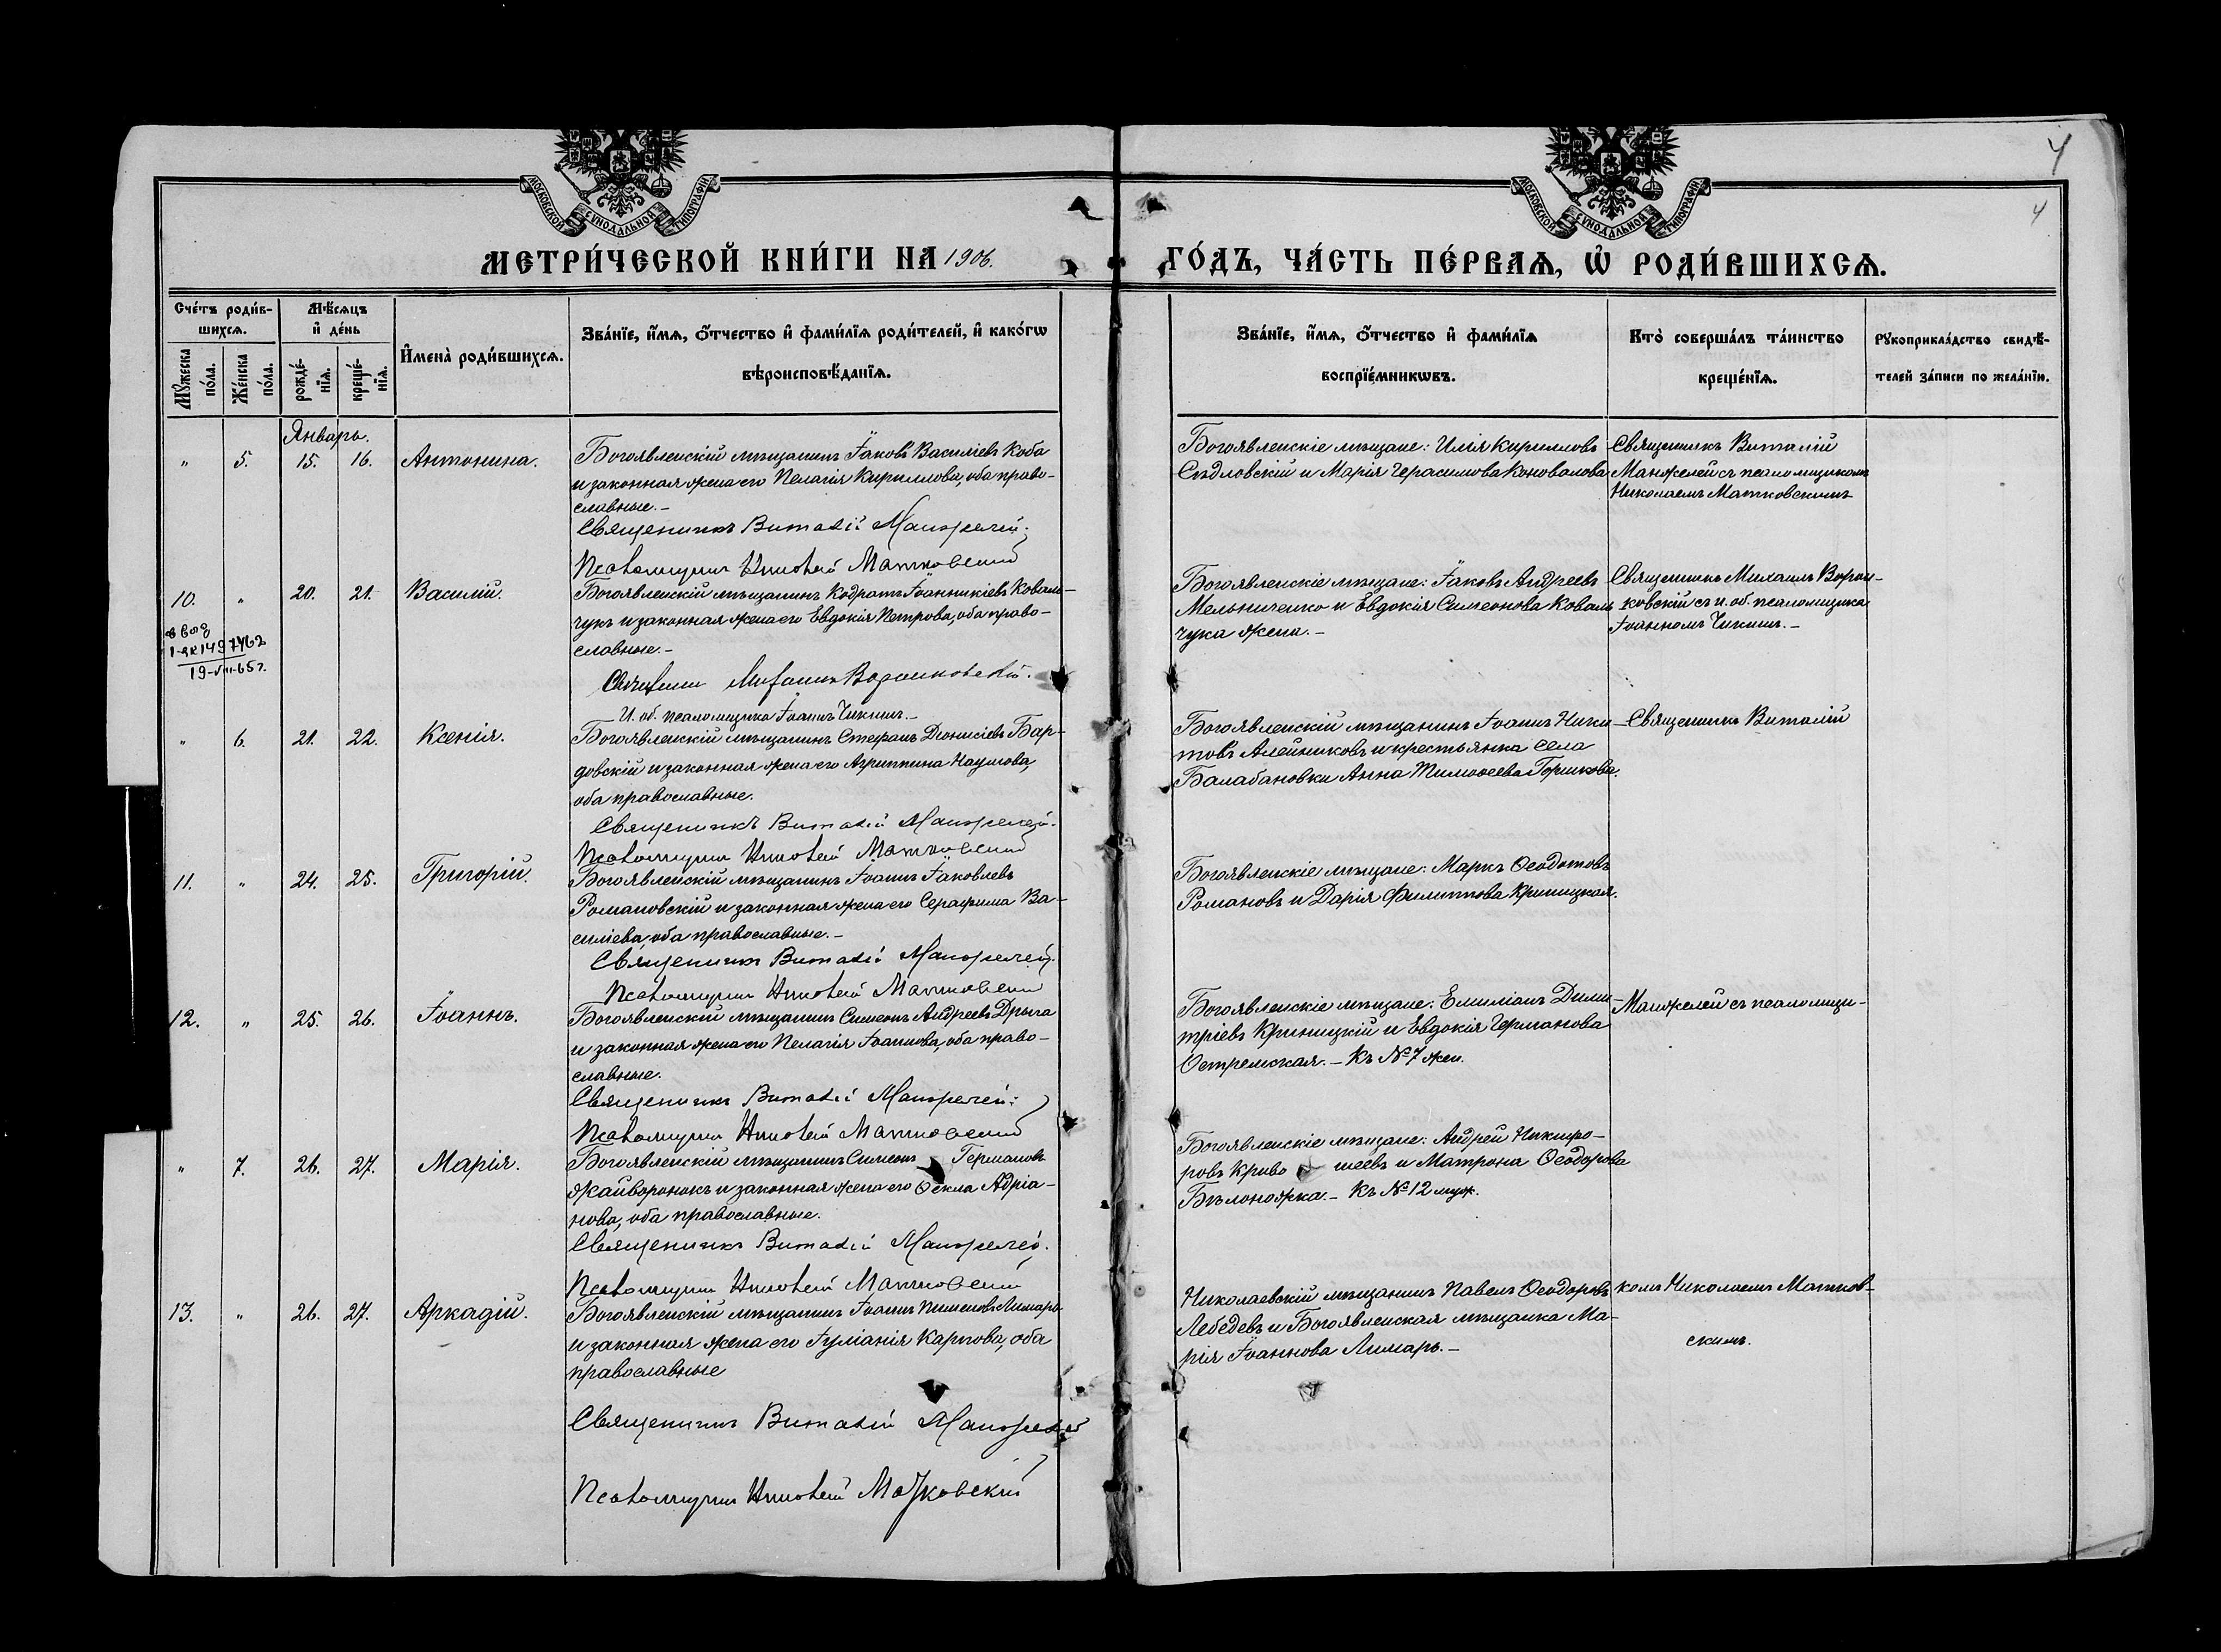 4
4
МОСКОВСКОЙ СѴНОДАЛЬНОЙ ТИПОГРАФІИ
МОСКОВСКОЙ СѴНОДАЛЬНОЙ ТИПОГРАФІИ
МЕТРИ́ЧЕСКОЙ КНИ́ГИ НА 1906.
ГО́ДЪ, ЧА́СТЬ ПЕ́РВАѦ, Ѽ РОДИ́ВШИХСѦ.
Сче́тъ роди́в-
шихсѧ.
Мꙋ́жеска
по́ла.
Же́нска
по́ла.
Мѣ́сѧцъ
и҆ де́нь
рожде́-
нїѧ.
креще́-
нїѧ.
И҆мена̀ роди́вшихсѧ.
Зва́нїе, и҆́мѧ, ѻ҆́тчество и҆ фами́лїѧ роди́телей, и҆ како́гѡ
вѣроисповѣ́данїѧ.
Зва́нїе, и҆́мѧ, ѻ҆́тчество и҆ фами́лїѧ
воспрїе́мникѡвъ.
Кто̀ соверша́лъ та́инство
креще́нїѧ.
Рꙋкоприкла́дство свидѣ́-
телей за́писи по жела́нїю.
Январь.
" 5. 15. 16. Антонина.
Богоявленскій мѣщанинъ Іаковъ Василіевъ Коба
и законная жена его Пелагія Кириллова, оба право-
славные.-
Священникъ Виталій Манжелей.
Псаломщикъ Николай Матковскій
Богоявленскіе мѣщане: Илія Кирилловъ
Сѣдловскій и Марія Герасимова Коновалова
Священникъ Виталій
Манжелей съ псаломщикомъ
Николаемъ Матковскимъ
10. " 20. 21. Василій.
19-VII-65г.
Богоявленскій мѣщанинъ Кодратъ Іоанникіевъ Коваль-
чукъ и законная жена его Евдокія Петрова, оба право-
славные.-
Священникъ Михаилъ Воронковскій.
И. об. псаломщика Іоаннъ Чикинъ.-
Богоявленскіе мѣщане: Іаковъ Андреевъ
Мельниченко и Евдокія Симеонова Коваль
чука жена.-
Священникъ Михаилъ Ворон-
ковскій съ и. об. псаломщика
Іоанномъ Чикин.-
" 6. 21. 22. Ксенія.
Богоявленскій мѣщанинъ Стефанъ Діонисіевъ Бар-
довскій и законная жена его Агриппина Наумова,
оба православные.
Священникъ Виталій Манжелей.
Псаломщикъ Николай Матковскій
Богоявленскій мѣщанинъ Іоаннъ Ники-
товъ Алейниковъ и крестьянка села
Балабановки Анна Тимоѳеева Горшкова.
Священникъ Виталій
11. " 24. 25. Григорій.
Богоявленскій мѣщанинъ Іоаннъ Іаковлевъ
Романовскій и законная жена его Серафима Ва-
силіева, оба православные.-
Священникъ Виталій Манжелей.
Псаломщикъ Николай Матковскій
Богоявленскіе мѣщане: Маркъ Ѳеодотовъ
Романовъ и Дарія Филиппова Криницкая.
12. " 25. 26. Іоаннъ.
Богоявленскій мѣщанинъ Симеонъ Андреевъ Дрыга
и законная жена его Пелагія Іоаннова, оба право-
славные.
Священникъ Виталій Манжелей.
Псаломщикъ Николай Матковскій
Богоявленскіе мѣщане: Емиліанъ Дими-
тріевъ Криницкій и Евдокія Германова
Остремская.- Къ № 7 жен.
Манжелей съ псаломщи-
" 7. 26. 27. Марія.
Богоявленскій мѣщанинъ Симеонъ Германовъ
Жайворонокъ и законная жена его Ѳекла Адріа-
нова, оба православные.
Священникъ Виталій Манжелей.
Псаломщикъ Николай Матковскій
Богоявленскіе мѣщане: Андрей Никифо-
ровъ Криво шеевъ и Матрона Ѳеодорова
Бѣлоножка.- Къ № 12 муж.
13. " 26. 27. Аркадій.
Богоявленскій мѣщанинъ Іоаннъ Пименовъ Лимарь
и законная жена его Іуліанія Карпова, оба
православные
Священникъ Виталій Манжелей
Псаломщикъ Николай Матковскій
Николаевскій мѣщанинъ Павелъ Ѳеодоровъ
Лебедевъ и Богоявленская мѣщанка Ма-
рія Іоаннова Лимарь.-
комъ Николаемъ Матков-
скимъ.